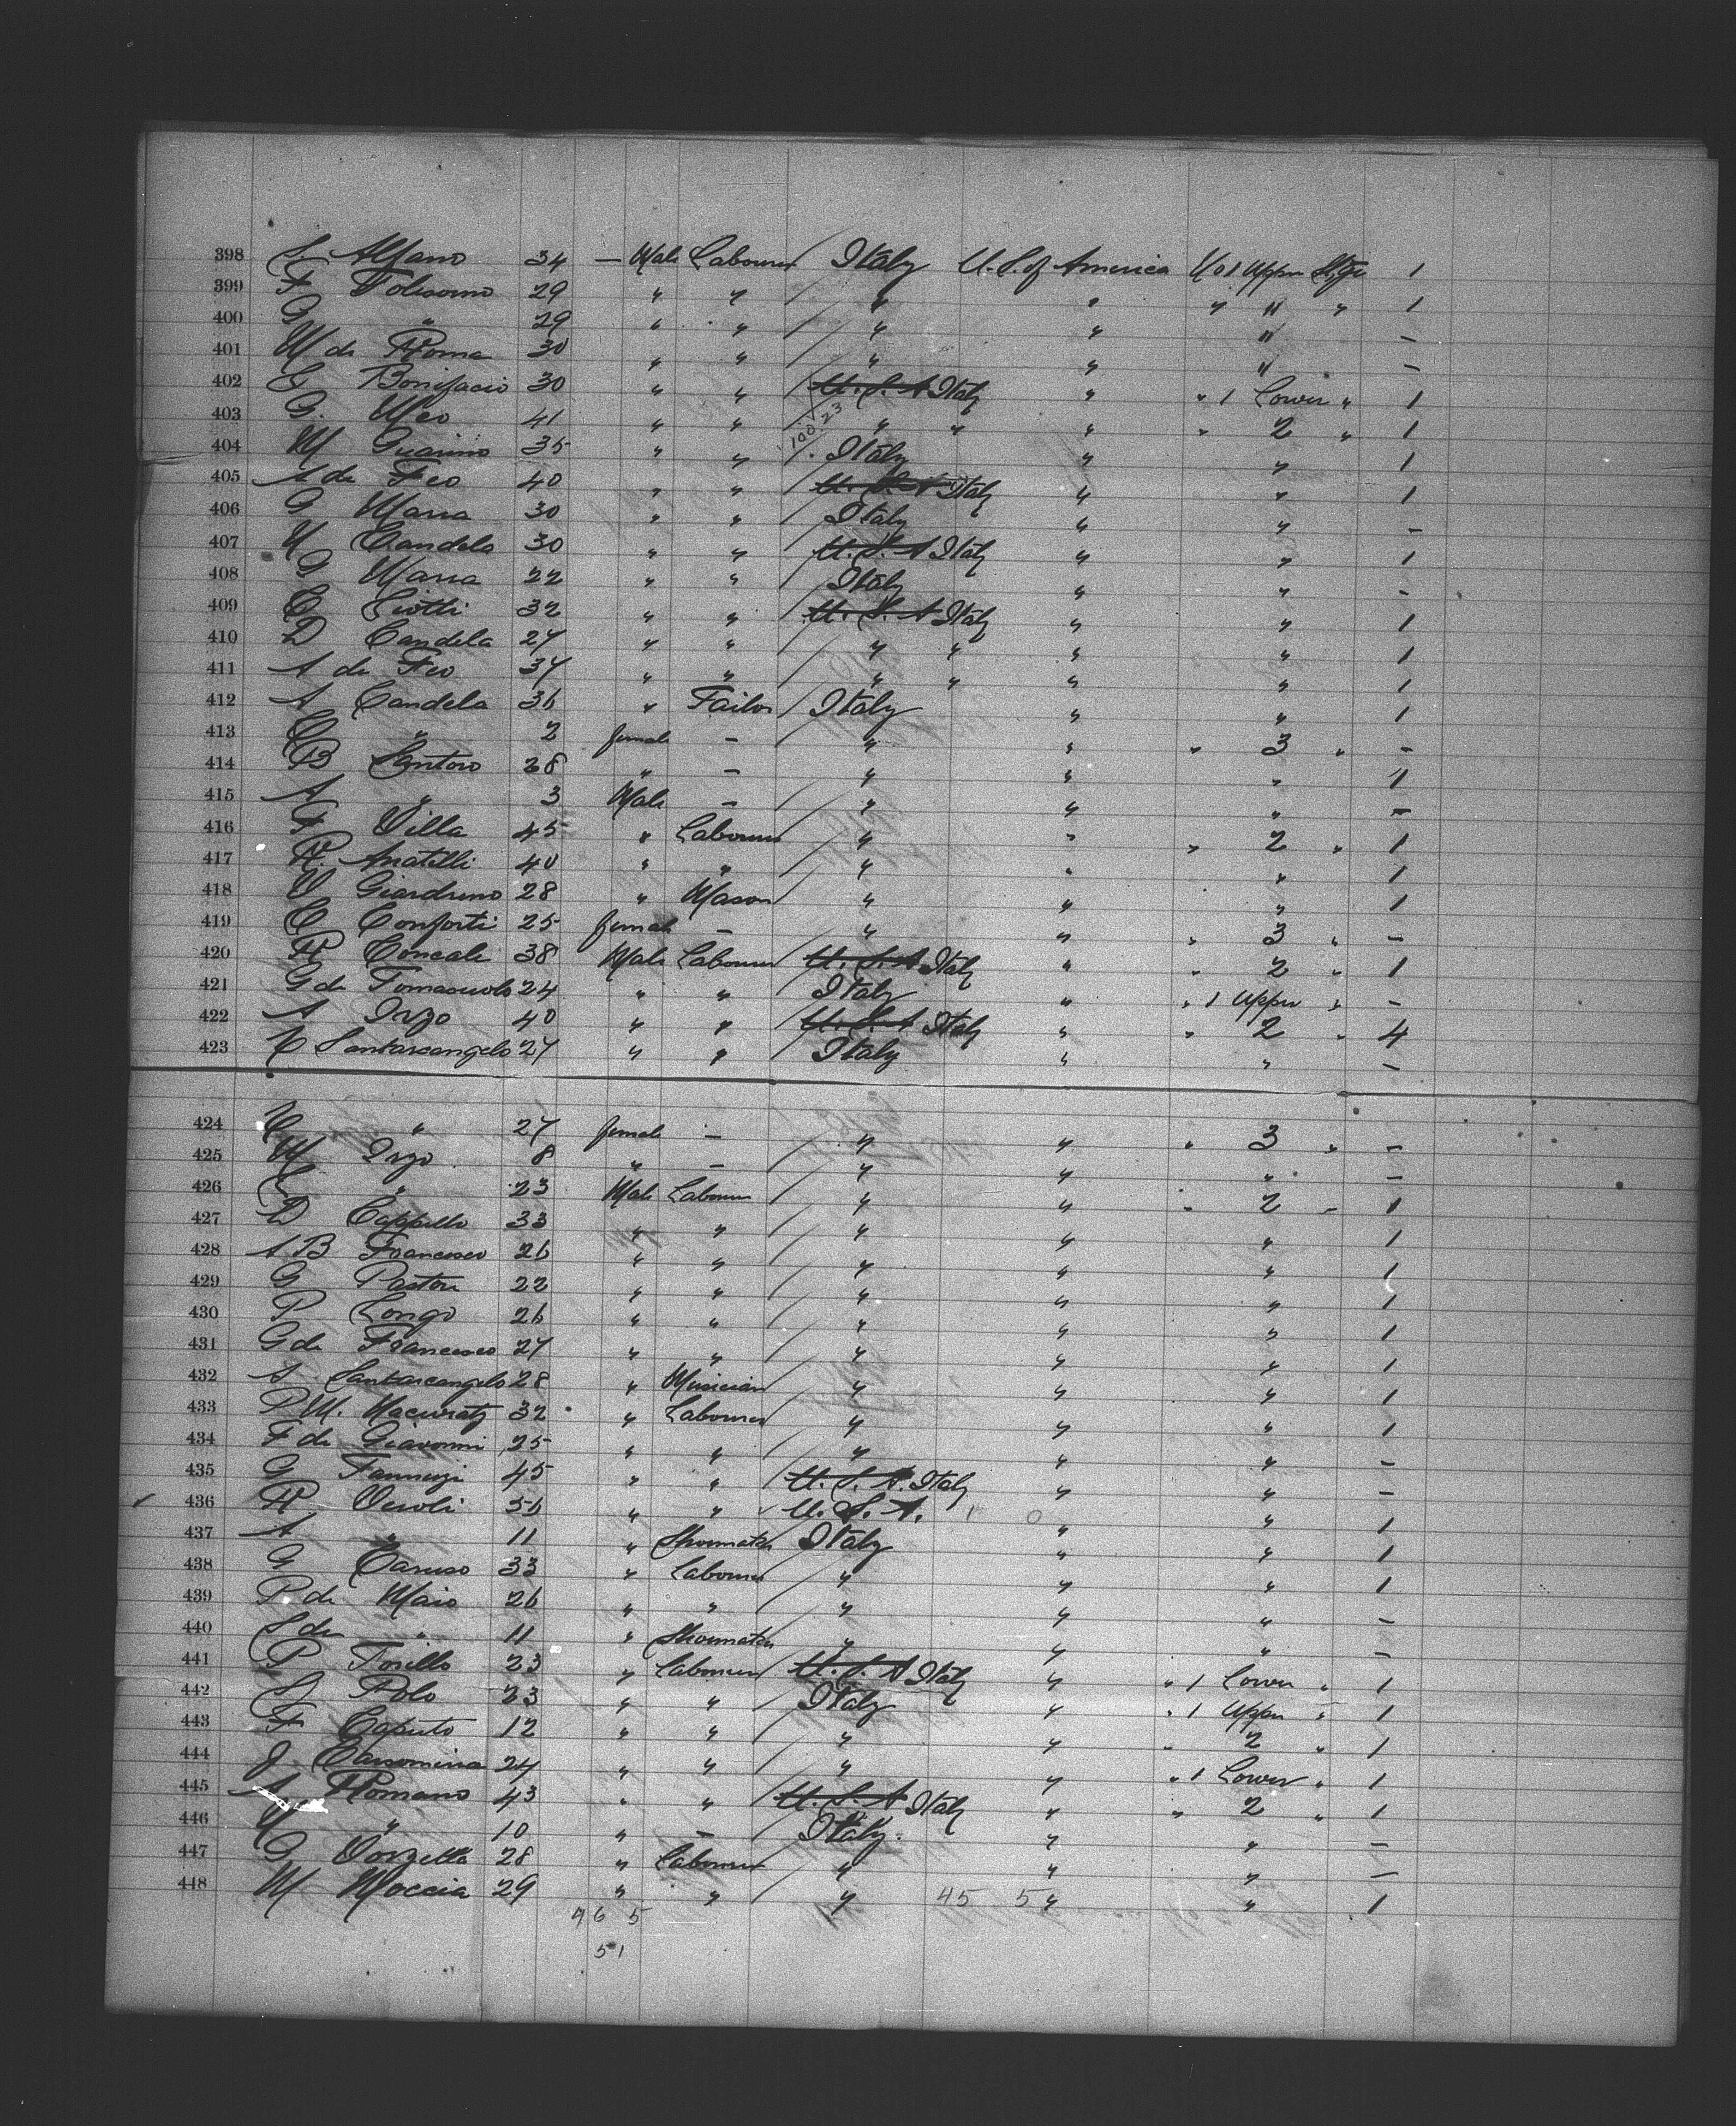 398 S. Alfano 34 — Male Labourer Italy U.S. of America No 1 Upper Stge 1
399 F Tolisomo 29 " " " " " " " 1
400 G " 29 " " " " " —
401 M de Roma 30 " " " " " —
402 G Bonifacio 30 " " U.S.A Italy " " 1 Lower " 1
403 G. Meo 41 " " " " " " 2 " 1
404 M Guarino 35 " " Italy " " 1
405 A de Feo 40 " " U.S.A Italy " " 1
406 G Marra 30 " " Italy " " —
407 Candela 30 " " U.S.A Italy " " 1
408 G Marra 22 " " Italy " " —
409 C Ciotti 32 " " U.S.A Italy " " 1
410 D Candela 27 " " " " " " 1
411 A de Feo 37 " " " " " " 1
412 A Candela 36 " Tailor Italy " " 1
413 C " 2 female — " " " 3 " —
414 B Santoro 28 " — " " " 1
415 A " 3 Male — " " " —
416 F Villa 45 " Labourer " " " 2 " 1
417 R. Anatelli 40 " " " " " 1
418 V Giardreno 28 " Mason " " " 1
419 C Conforti 25 female — " " " 3 " —
420 R Concale 38 Male Labourer U.S.A Italy " " 2 " 1
421 G de Tomasuolo 24 " " Italy " " 1 Upper " —
422 A Irzo 40 " " U.S.A Italy " " 2 " 4
423 Santarcangelo 27 " " Italy " " —
424 " 27 female — " " " 3 " —
425 M Irzo 8 " — " " " —
426 C " 23 Male Labourer " " " 2 " 1
427 D Cappello 33 " " " " " 1
428 A B Francesco 26 " " " " " 1
429 G Pastore 22 " " " " " 1
430 P Longo 26 " " " " " 1
431 G de Francesco 27 " " " " " 1
432 A Santarcangelo 28 " Musician " " " 1
433 P M. 32 " Labourer " " " 1
434 F de Giavonni 25 " " " " " —
435 G Fannuzi 45 " " U.S.A. Italy " " —
436 R Veroli 56 " " U.S.A. 1 0 " " 1
437 A " 11 " Shoemaker Italy " " 1
438 G Caruso 33 " Labourer " " " 1
439 P. de Maio 26 " " " " " —
440 S de " 11 " Shoemaker " " " —
441 P Torillo 23 " Labourer U.S.A Italy " " 1 Lower " 1
442 S Polo 23 " " Italy " " 1 Upper " 1
443 F Caputo 12 " " " " " 2 " 1
444 J Carsomina 24 " " " " " 1 Lower " 1
445 A Romano 43 " " U.S.A Italy " " 2 " 1
446 " 10 " — Italy. " " —
447 G Vorzella 28 " Labourer " " " —
448 M Moccia 29 " " " 45 5 " " 1
46 5
51